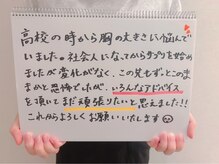 高校の時から胸の大きさに悩んで
いました。社会人になってからサプリを始め
ましたが変化がなく、この先もずっとこのまま
かと恐怖でしたが、いろんなアドバイス
を頂いてまだ頑張りたいと思えました!!
これからよろしくお願いいたします☺